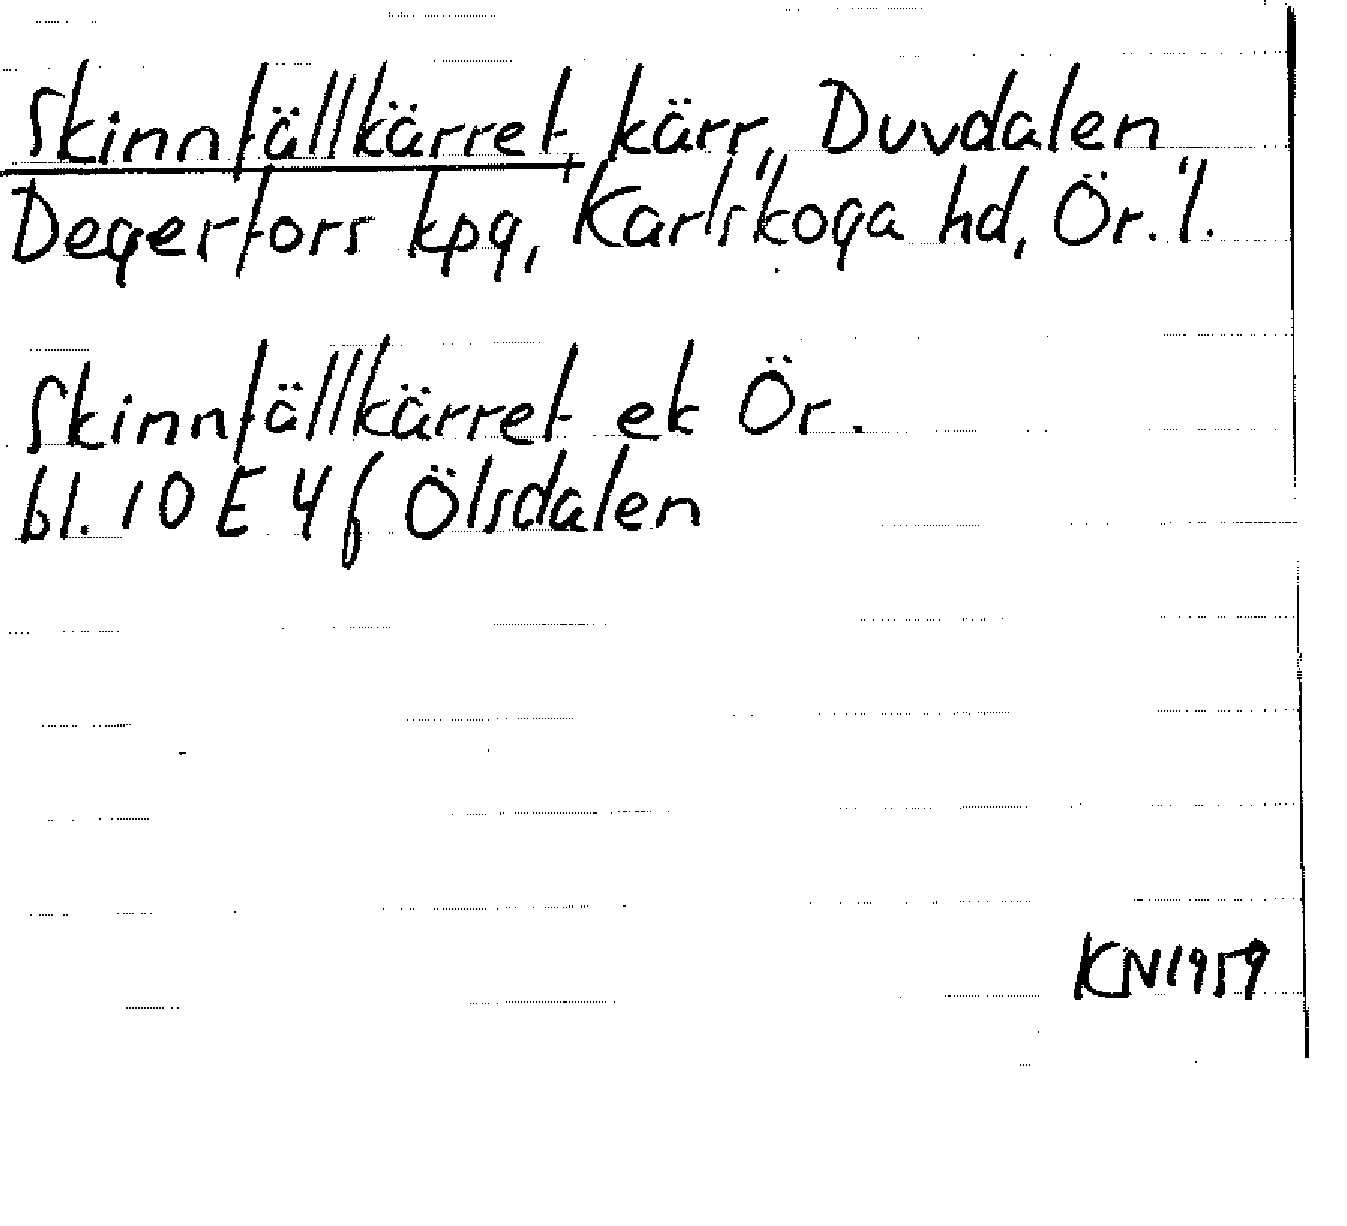 Skinnfällkärret, kärr, Duvdalen
Degerfors kpg, Karlskoga hd, Ör. l.
Skinnfällkärret ek Ör.
bl. 10 E 4 f Ölsdalen
KN1959